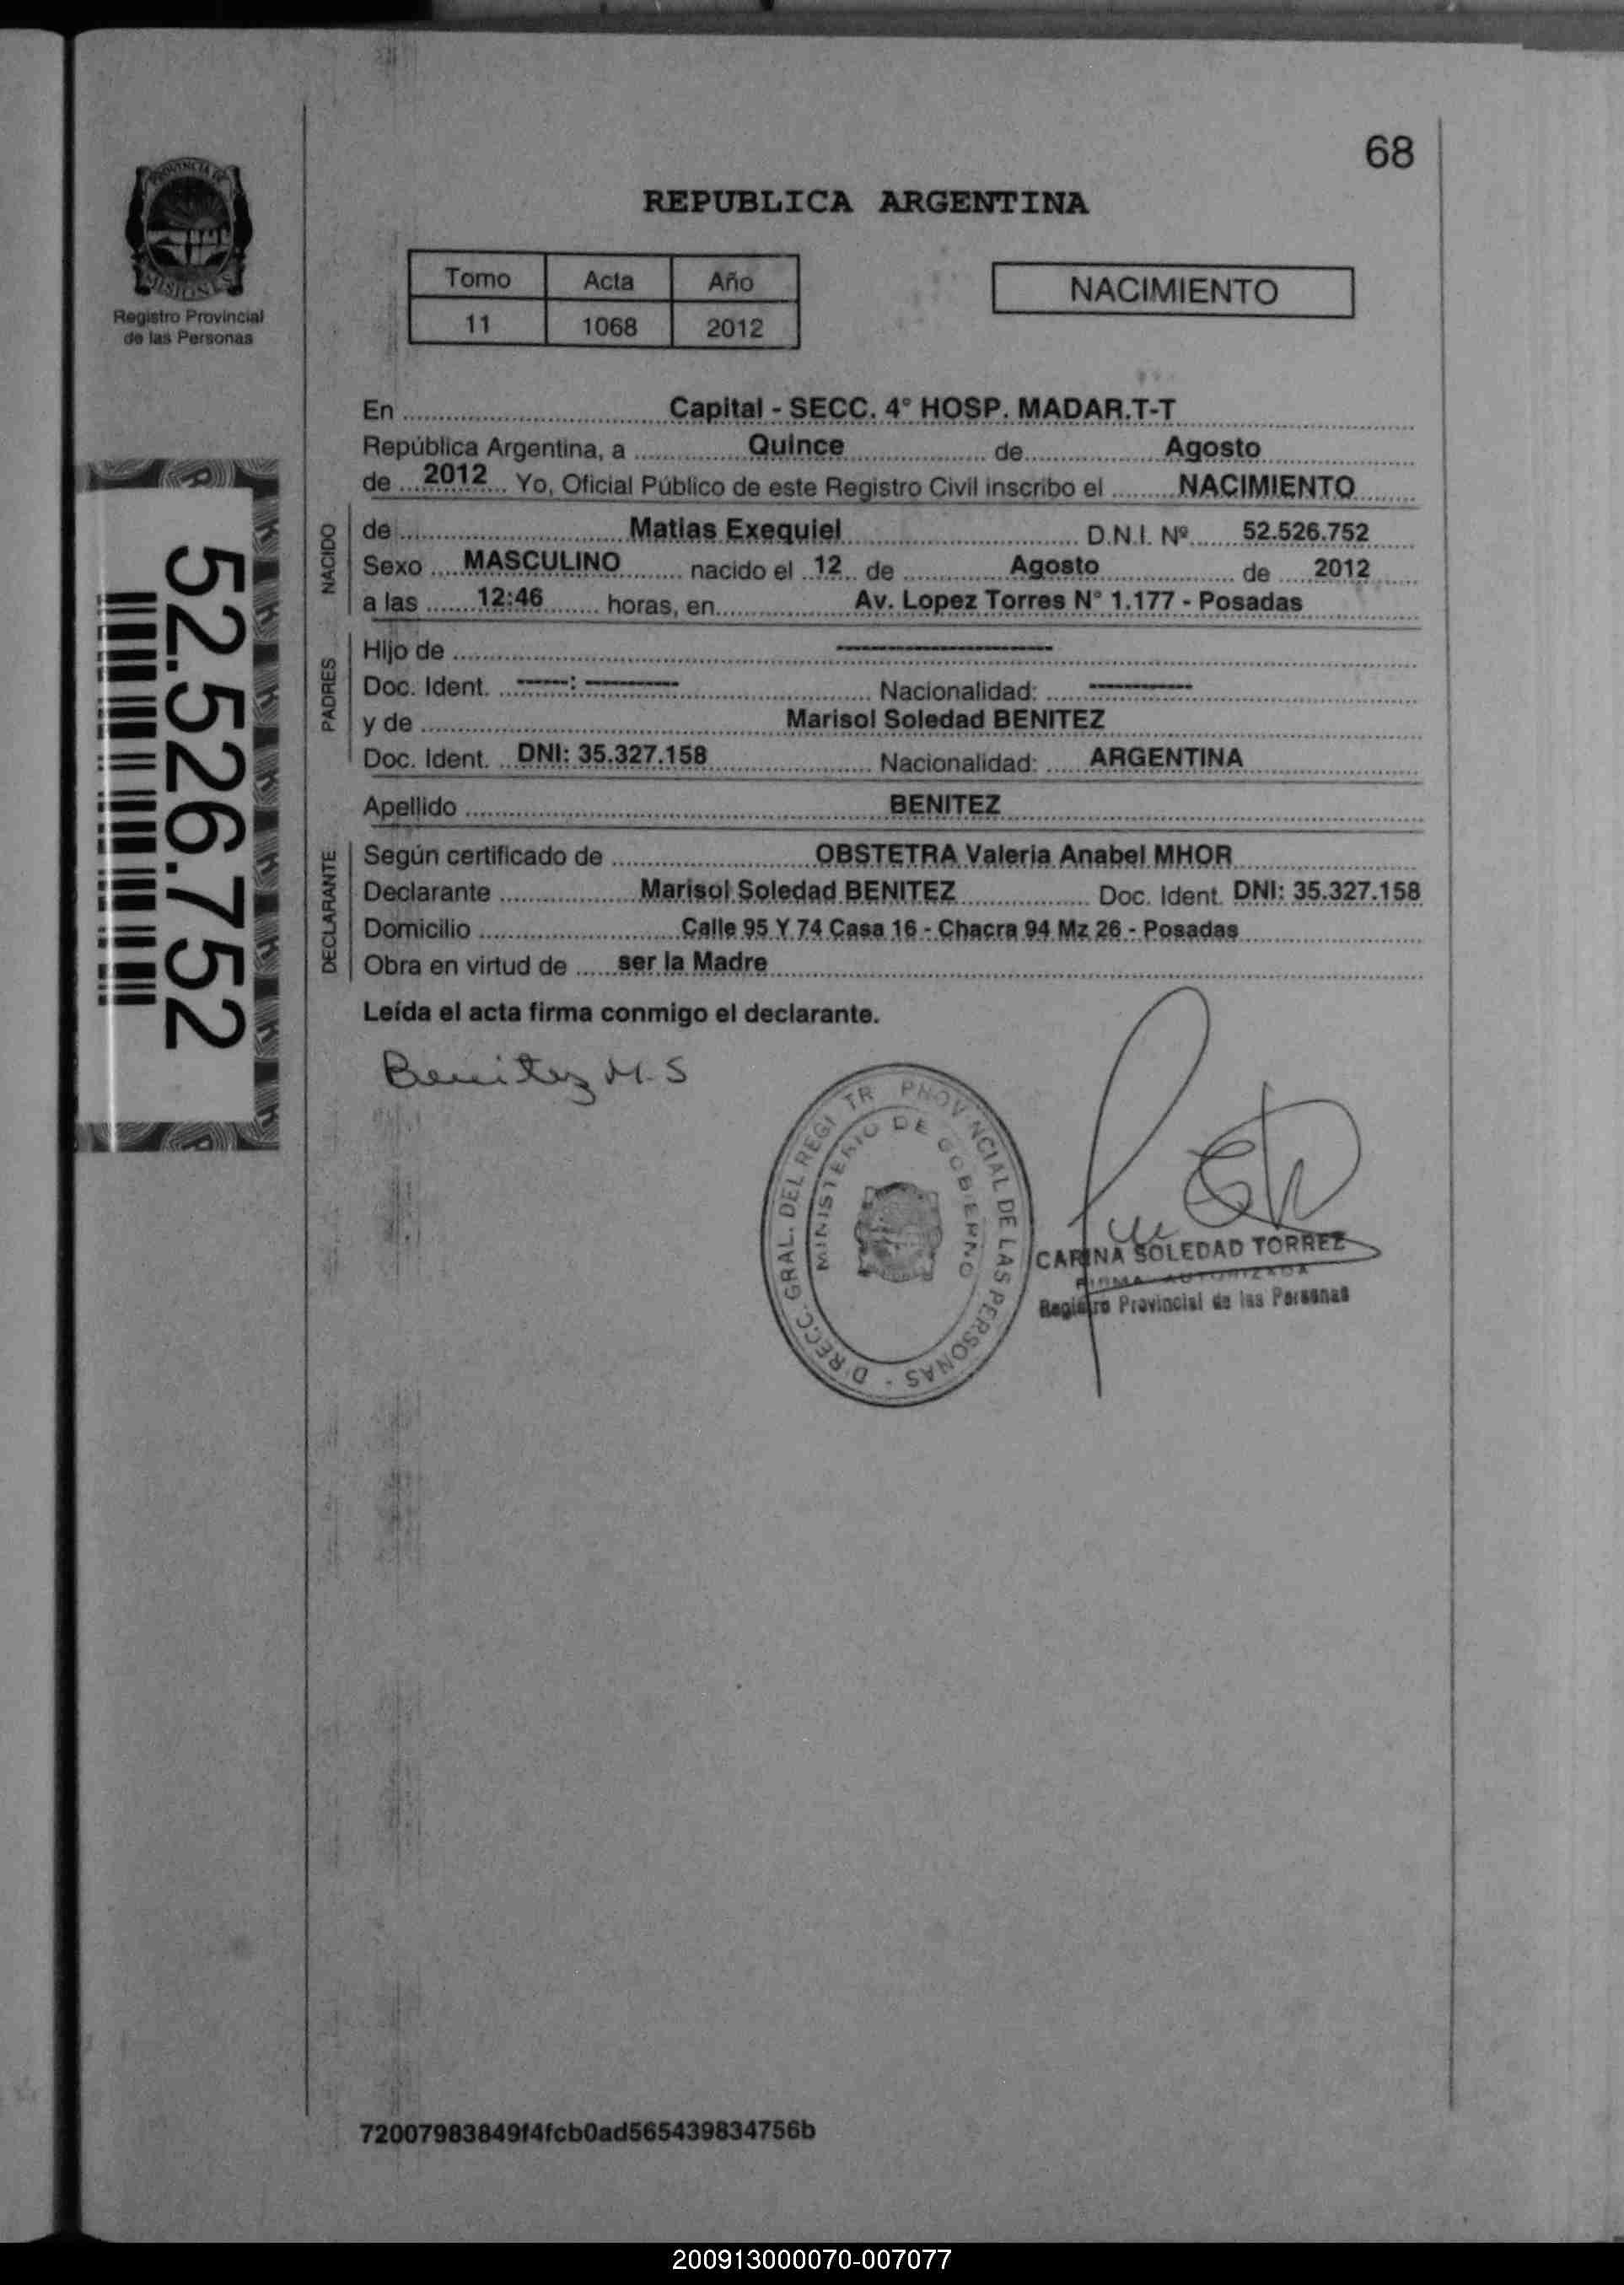 68
PROVINCIA DE
MISIONES
Registro Provincial
de las Personas
REPUBLICA ARGENTINA
Tomo Acta Año
11 1068 2012
NACIMIENTO
En Capital - SECC. 4° HOSP. MADAR.T-T
República Argentina, a Quince de Agosto
de 2012 Yo, Oficial Público de este Registro Civil inscribo el NACIMIENTO
NACIDO
de Matias Exequiel D.N.I. Nº 52.526.752
Sexo MASCULINO nacido el 12 de Agosto de 2012
a las 12:46 horas, en Av. Lopez Torres N° 1.177 - Posadas
PADRES
Hijo de --------------------
Doc. Ident. -----: --------- Nacionalidad: ----------
y de Marisol Soledad BENITEZ
Doc. Ident. DNI: 35.327.158 Nacionalidad: ARGENTINA
Apellido BENITEZ
DECLARANTE
Según certificado de OBSTETRA Valeria Anabel MHOR
Declarante Marisol Soledad BENITEZ Doc. Ident. DNI: 35.327.158
Domicilio Calle 95 Y 74 Casa 16 - Chacra 94 Mz 26 - Posadas
Obra en virtud de ser la Madre
Leída el acta firma conmigo el declarante.
52.526.752
Benitez M.S
DIRECC. GRAL. DEL REGISTR PROVINCIAL DE LAS PERSONAS -
MINISTERIO DE GOBIERNO
CARINA SOLEDAD TORREZ
FIRMA AUTORIZADA
Registro Provincial de las Personas
72007983849f4fcb0ad565439834756b
200913000070-007077